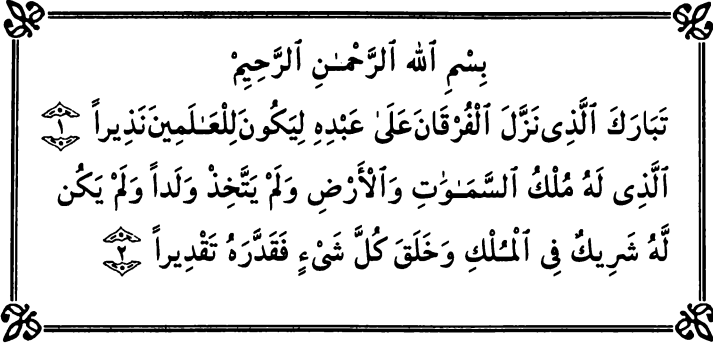 بِسْمِ ٱللهِ ٱلرَّحْمَـٰنِ ٱلرَّحِيمْ
تَبَارَكَ ٱلَّذِى نَزَّلَ ٱلْفُرْقَانَ عَلَىٰ عَبْدِهِ لِيَكُونَ لِلْعَـٰلَمِينَ نَذِيراً ١
ٱلَّذِى لَهُ مُلْكُ ٱلسَّمَـٰوَٰتِ وَٱلْأَرْضِ وَلَمْ يَتَّخِذْ وَلَداً وَلَمْ يَكُن
لَّهُ شَرِيكٌ فِى ٱلْمُلْكِ وَخَلَقَ كُلَّ شَىْءٍ فَقَدَّرَهُ تَقْدِيراً ٢